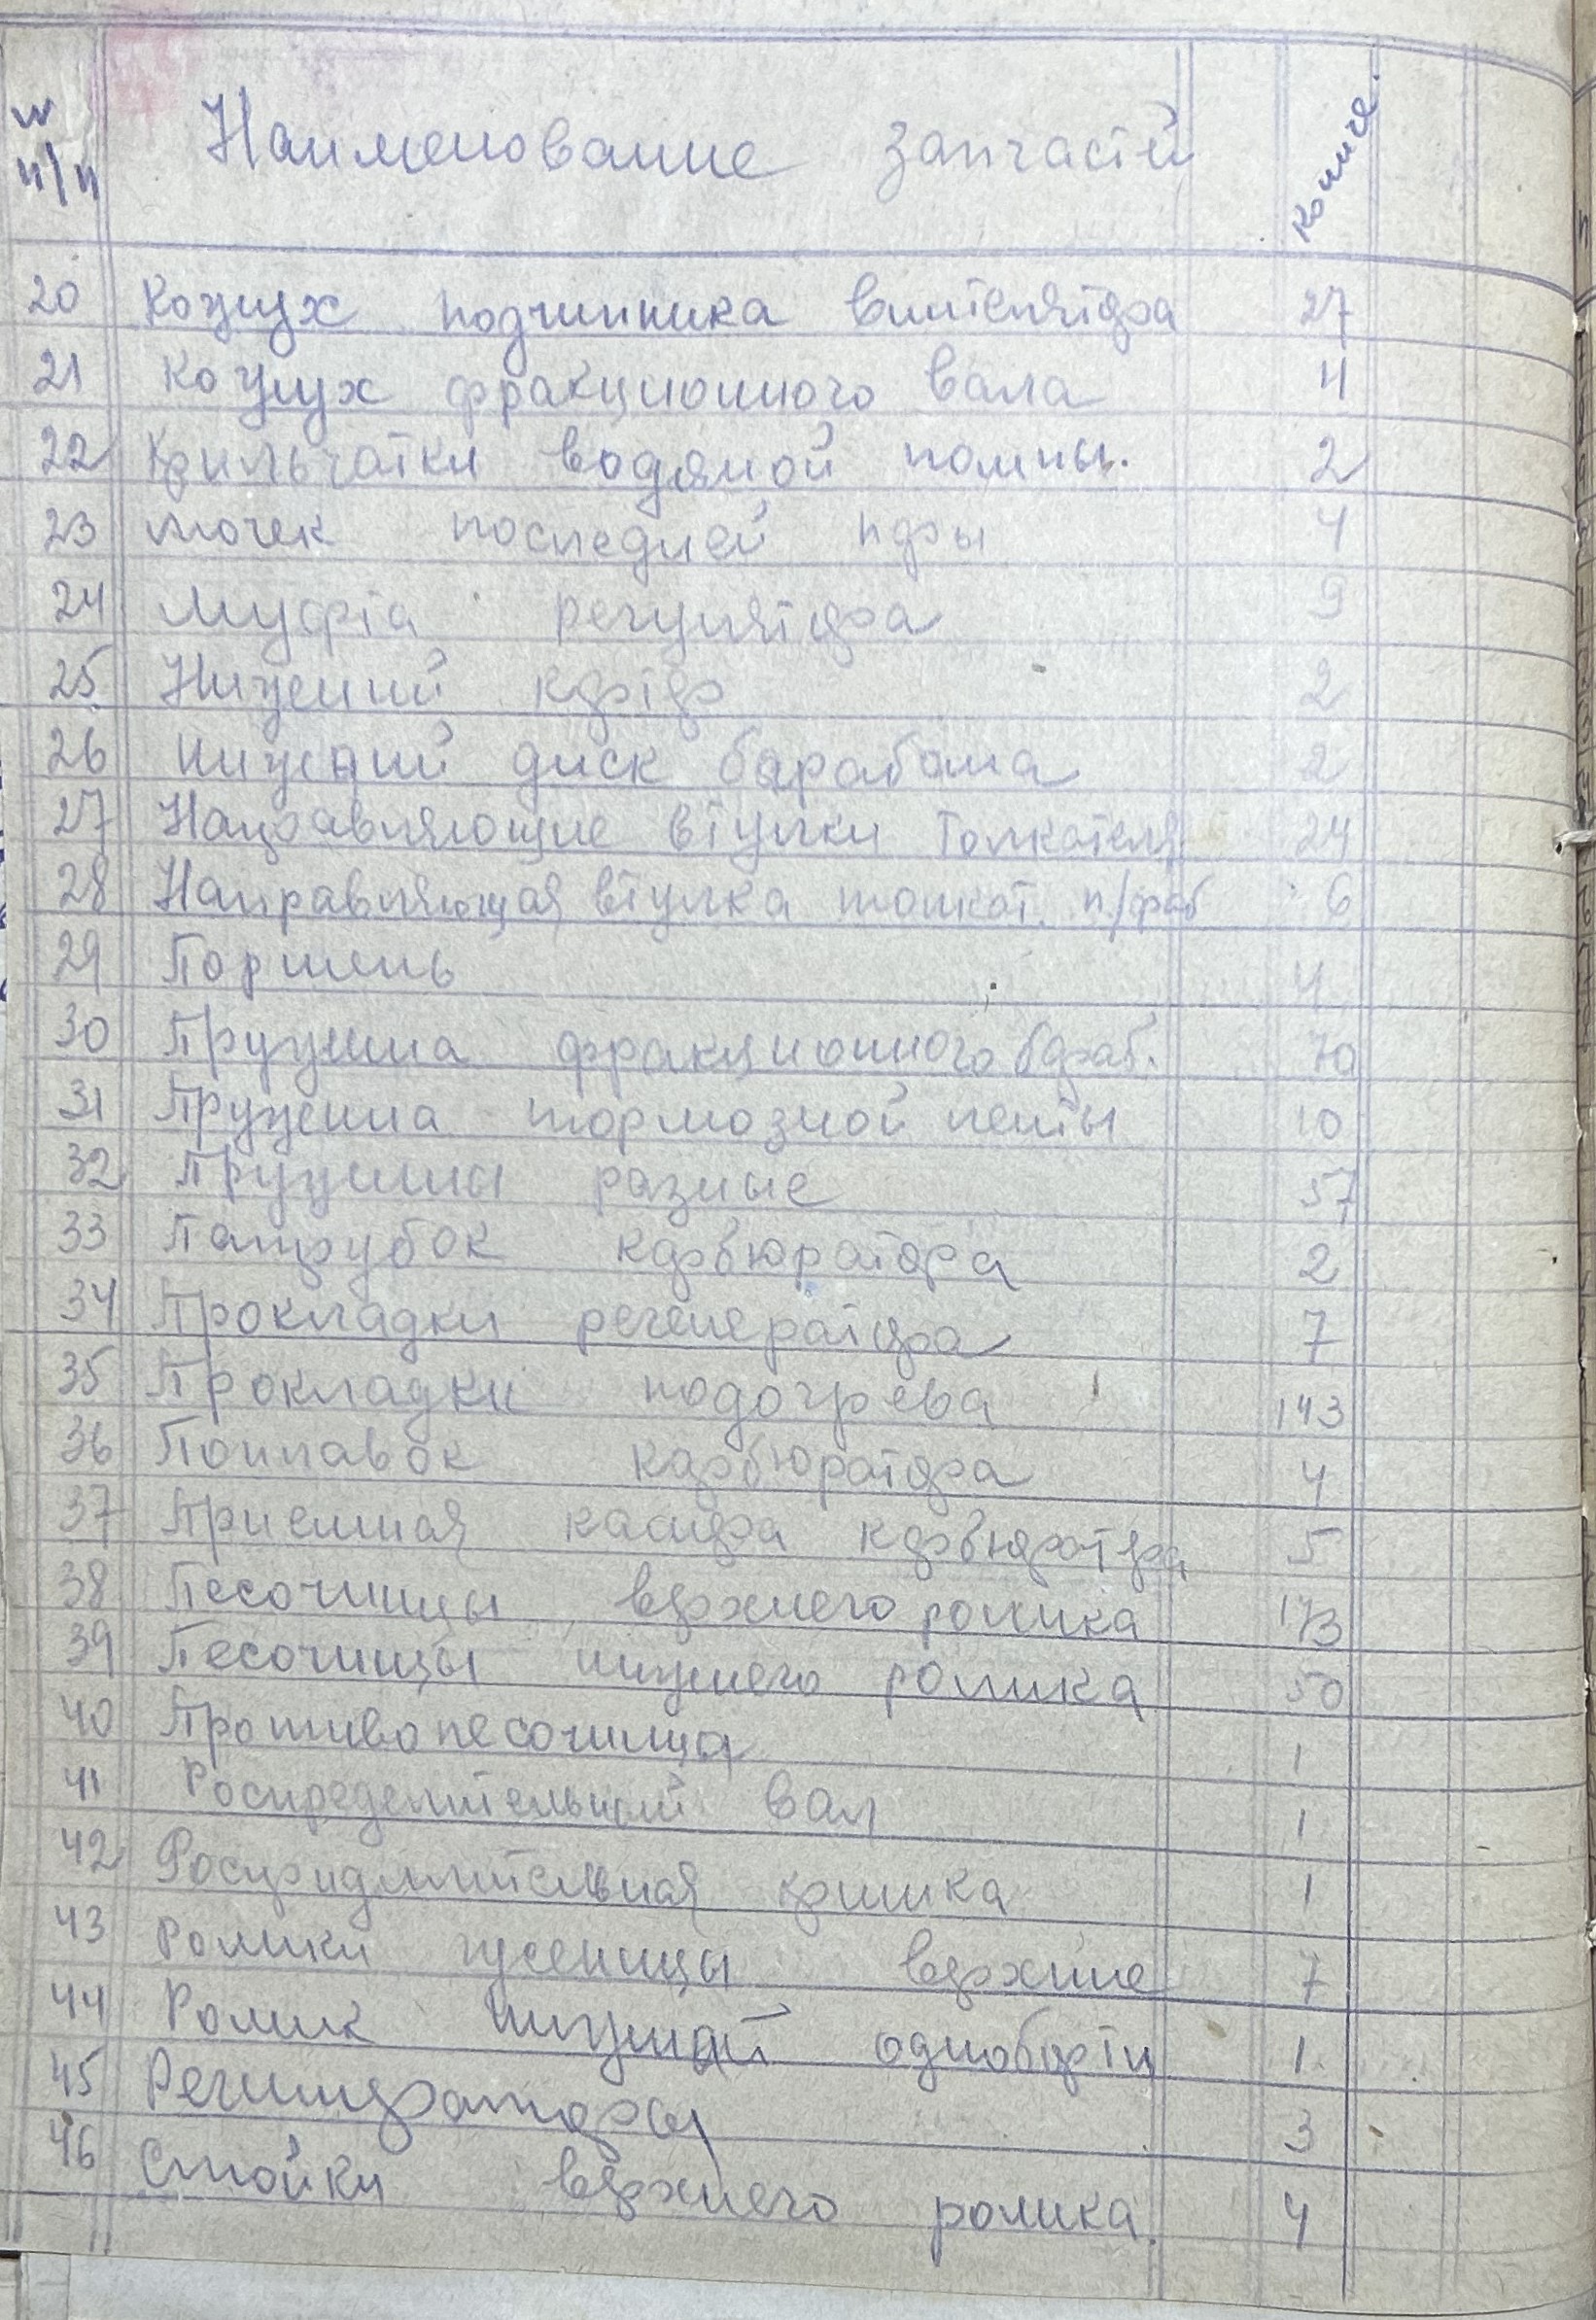 № п/п Наименование запчастей Количе.
20 Кожух подчипника винтелятора 27
21 Кожух фракционного вала 4
22 Крильчатки водяной помпы. 2
23 последней пары 4
24 Муфта регулятора 9
25 Нижений картер 2
26 Нижений диск барабана 2
27 Направляющие втулки толкателя 24
28 Направляющая втулка толкат. п/раб 6
29 Поршень 4
30 Пружина фракционного бараб. 70
31 Пружена тормозной ленты 10
32 Пружины разные 57
33 Патрубок карбюратора 2
34 Прокладки регенератора 7
35 Прокладки подогрева 143
36 Поплавок карбюратора 4
37 Приемная камера карбюратора 5
38 Песочницы верхнего ролика 173
39 Песочницы нижнего ролика 50
40 Противопесочница 1
41 Роспределительный вал 1
42 Роспридилительная кришка 1
43 Ролики гусеницы верхние 7
44 Ролик нижний однобортн 1
45 3
46 Стойки верхнего ролика. 4